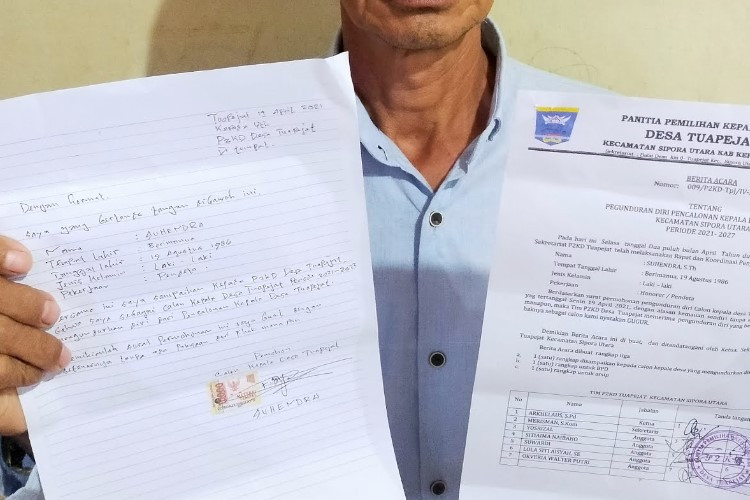 Tuapejat 19 April 2021
Kepada Yth
P2KD Desa Tuapejat
Di tempat.
Dengan Hormat,
Saya yang bertanda tangan dibawah ini,
Nama : SUHENDRA
Tempat lahir : Berimanua
Tanggal lahir : 19 Agustus 1986
Jenis kelamin : Laki-Laki
Pekerjaan : Pendeta
ini saya sampaikan kepada P2KD Desa Tuapejat
Bahwa saya sebagai calon Kepala Desa Tuapejat Periode 2021-2027
mengundurkan diri dari Pencalonan Kepala Desa Tuapejat.
Demikianlah Surat Permohonan ini saya buat dengan
sebenarnya tanpa ada Paksaan dari Pihak manapun
Pemohon
calon Kepala Desa Tuapejat
SUHENDRA
PANITIA PEMILIHAN KEPA
DESA TUAPEJA
KECAMATAN SIPORA UTARA KAB KE
Sekretariat : Jalan Desa Km 0 Tuapejat Kec. Sipora
BERITA ACARA
Nomor: 009/P2KD-Tpj/IV-
TENTANG
PEGUNDURAN DIRI PENCALONAN KEPALA
KECAMATAN SIPORA UTARA
PERIODE 2021-2027
Pada hari ini Selasa tanggal Dua puluh bulan April Tahun
Sekretariat P2KD Tuapejat telah melaksanakan Rapat dan Koordinasi
Nama : SUHENDRA, S.Th
Tempat Tanggal Lahir : Berimanua, 19 Agustus 1986
Jenis Kelamin : Laki - laki
Pekerjaan : Honorer / Pendeta
Berdasarkan surat permohonan pengunduran diri Calon kepala desa
yang tertanggal Senin 19 April 2021, dengan alasan kemauan sendiri tanpa
manapun, maka Tim P2KD Desa Tuapejat menerima pengunduran diri yang
haknya sebagai calon kami nyatakan GUGUR.
Demikian Berita Acara ini di buat, dan ditandatangani oleh Ketua
Tuapejat Kecamatan Sipora Utara
Berita Acara dibuat rangkap tiga
a. 1 (satu) rangkap disampaikan kepada calon kepala desa yang mengundurkan
b. 1 (satu) rangkap untuk BPD
c. 1 (satu) rangkap untuk arsip
TIM P2KD TUAPEJAT KECAMATAN SIPORA UTARA
No Nama Jabatan Tanda tangan
1 ARKHELAUS, S.Pd Ketua
2 MERISMAN, S.Kom Sekretaris
3 YOSRIZAL Anggota
4 Anggota
5 SUWARDI Anggota
6 LOLA SITI AISYAH, SE Anggota
7 OKVERIA WALTER PUTRI Anggota